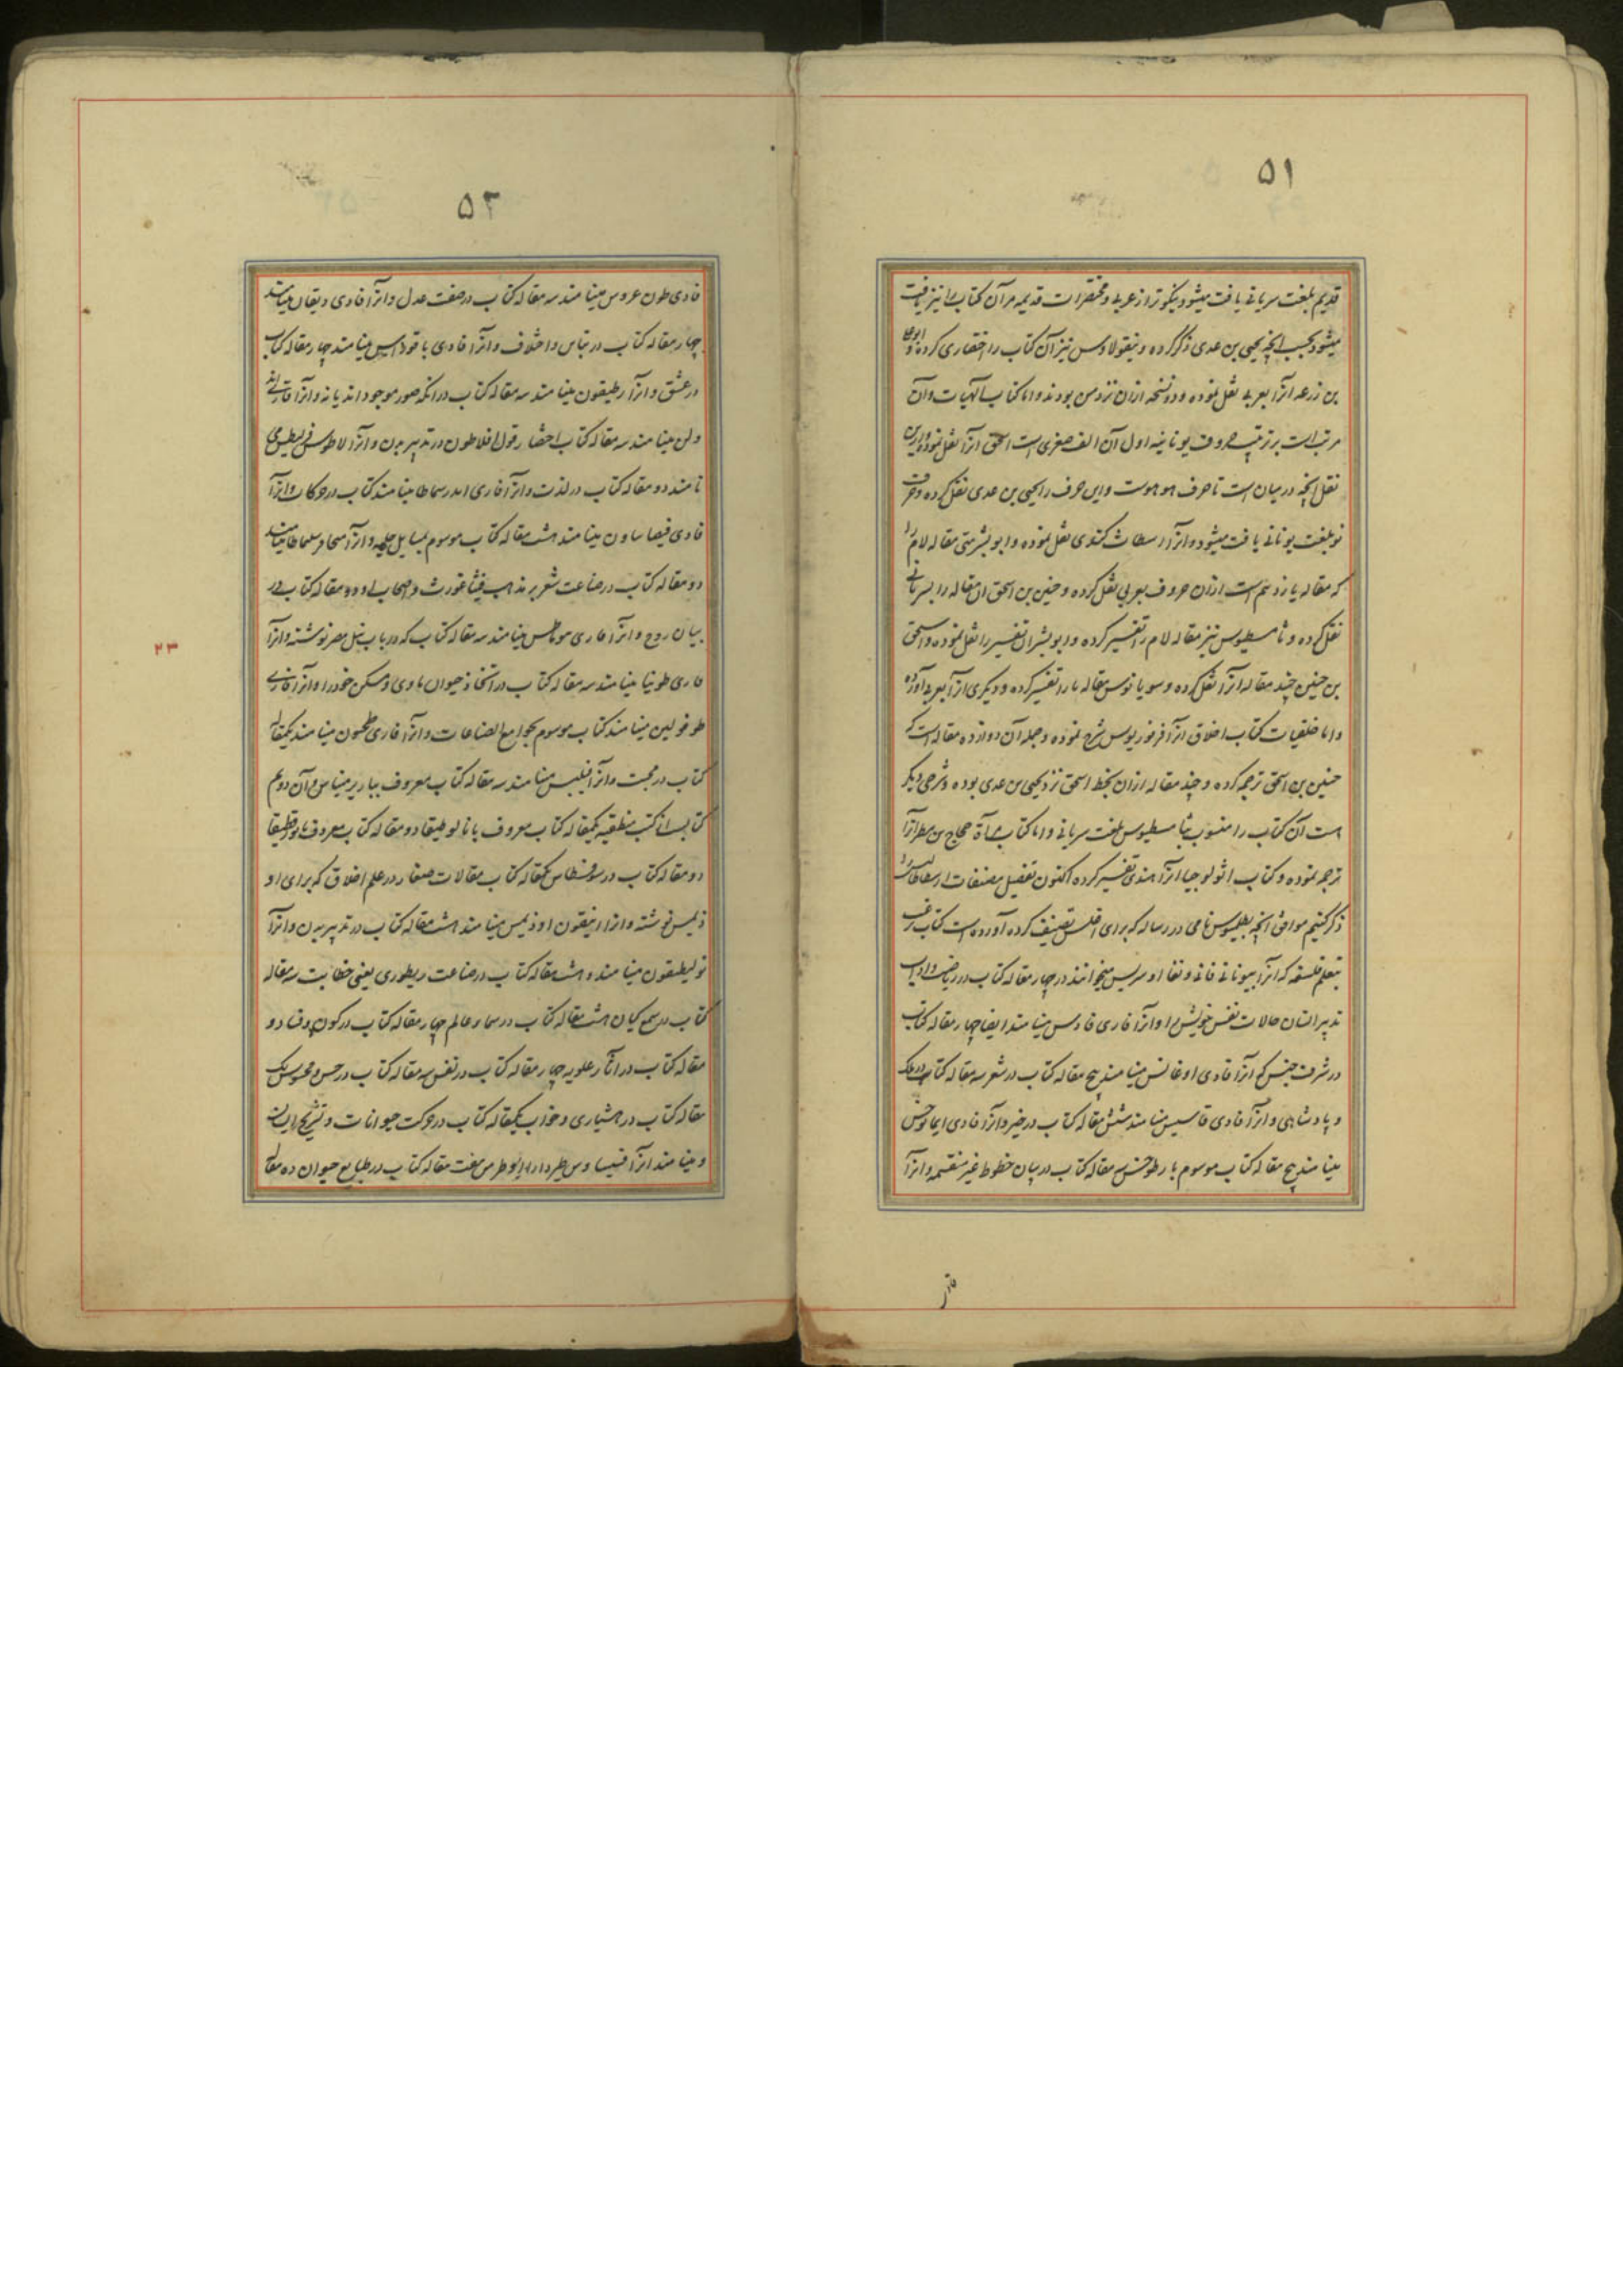 ۵۱
قدیم بلغت سریانی یافت میشود نیکوتر از عربی و مختصرات قدیمه مر آن کتاب را نیز یافت
میشود بحسب آنچه یحیی بن عدی ذکر کرده و نیقولاوس نیز آن کتاب را اختصاری کرده و ابو علی
بن زرعه آنرا بعربی نقل نموده و دو نسخه ازان نزد من بودند و اما کتاب الهیات و آن
مرتب است بر ترتیب حروف یونانیه اول آن الف صغری است اسحق آنرا نقل نموده و ازین
نقل آنچه در میان است تا حرف مو هوست و این حرف را یحیی بن عدی نقل کرده و حرف
نو بلغت یونانی یافت میشود و آنرا اسطاث کندی نقل نموده و ابو بشر متی مقاله لام را
که مقاله یازدهم است ازان حروف بعربی نقل کرده و حنین بن اسحق ان مقاله را بسریانی
نقل کرده و ثامسطیوس نیز مقاله لام را تفسیر کرده و ابو بشر ان تفسیر را نقل نموده و اسحق
بن حنین چند مقاله آنرا نقل کرده و سوریانوس مقاله با را تفسیر کرده و دیگری آنرا بعربی آورده
و اما خلقیات کتاب اخلاق آنرا فرفوریوس شرح نموده و جمله آن دوازده مقاله است که
حنین بن اسحق ترجمه کرده و چند مقاله ازان بخط اسحق نزد یحیی بن عدی بوده و شرحی دیگر
است آن کتاب را منسوب بثامسطیوس بلغت سریانی و اما کتاب مرآة حجاج بن مطر آنرا
ترجمه نموده و کتاب اثولوجیا آنرا کندی تفسیر کرده اکنون تفصیل مصنفات ارسطاطالیس را
ذکر کنیم موافق آنچه بطلیموس نامی در رساله که برای اغلس تصنیف کرده آورده است کتاب ترغیب
تعلم فلسفه که آنرا بیونانی میخوانند در چهار مقاله کتاب در ریاضت و اداب
تدبیر انسان حالات نفس خویش را و آنرا فاری فادس مینامند ایضا چهار مقاله کتاب
در شرف جنس که آنرا فادی اوغانس مینامند پنج مقاله کتاب در شعر سه مقاله کتاب در ملک
و پادشاهی و آنرا فادی قاسیس مینامند شش مقاله کتاب در خیر و آنرا فادی
مینامند پنج مقاله کتاب موسوم بارطوخس سه مقاله کتاب در بیان خطوط غیر منقسمه و آنرا
فادی
۵۲
فادی طون عروس مینامند سه مقاله کتاب در صفت عدل و آنرا فادی دیقان مینامند
چهار مقاله کتاب در تباین و اختلاف و آنرا فادی یاقوداس مینامند چهار مقاله کتاب
در عشق و آنرا رطیقون مینامند سه مقاله کتاب در آنکه صور موجوداند یا نه و آنرا
مینامند سه مقاله کتاب اختصار قول افلاطون در تدبیر مدن و آنرا
نامند دو مقاله کتاب در لذت و آنرا فاری مینامند کتاب در حرکات و آنرا
فادی مینامند هشت مقاله کتاب موسوم بمسایل حیلیه و آنرا مینامند
دو مقاله کتاب در صناعت شعر بر مذهب فیثاغورث و اصحاب او دو مقاله کتاب در
بیان روح و آنرا فاری مینامند سه مقاله کتاب که در باب نیل مصر نوشته و آنرا
فاری طونیا مینامند سه مقاله کتاب در اتخاذ حیوان ماوی و مسکن خود را و آنرا فاری
طوفولین مینامند کتاب موسوم بجوامع الصناعات و آنرا فاری طخسون مینامند یکمقاله
کتاب در محبت و آنرا فیلیس مینامند سه مقاله کتاب معروف بباریرمیناس و آن دویم
کتابست از کتب منطقیه یکمقاله کتاب معروف بانالوطیقا دو مقاله کتاب معروف
دو مقاله کتاب در سوفسطاس یکمقاله کتاب مقالات صغار در علم اخلاق که برای او
ذیمس نوشته و آنرا ارنیقون اوذیمس مینامند هشت مقاله کتاب در تدبیر مدن و آنرا
بولیطیقون مینامند و هشت مقاله کتاب در صناعت ریطوری یعنی خطابت سه مقاله
کتاب در سمع کیان هشت مقاله کتاب در سما و عالم چهار مقاله کتاب در کون و فساد دو
مقاله کتاب در اثار علویه چهار مقاله کتاب در نفس سه مقاله کتاب در حس و محسوس یک
مقاله کتاب در هشیاری و خواب یکمقاله کتاب در حرکت حیوانات و تشریح ایشان
و مینامند آنرا هفت مقاله کتاب در طبایع حیوان ده مقاله
۲۳